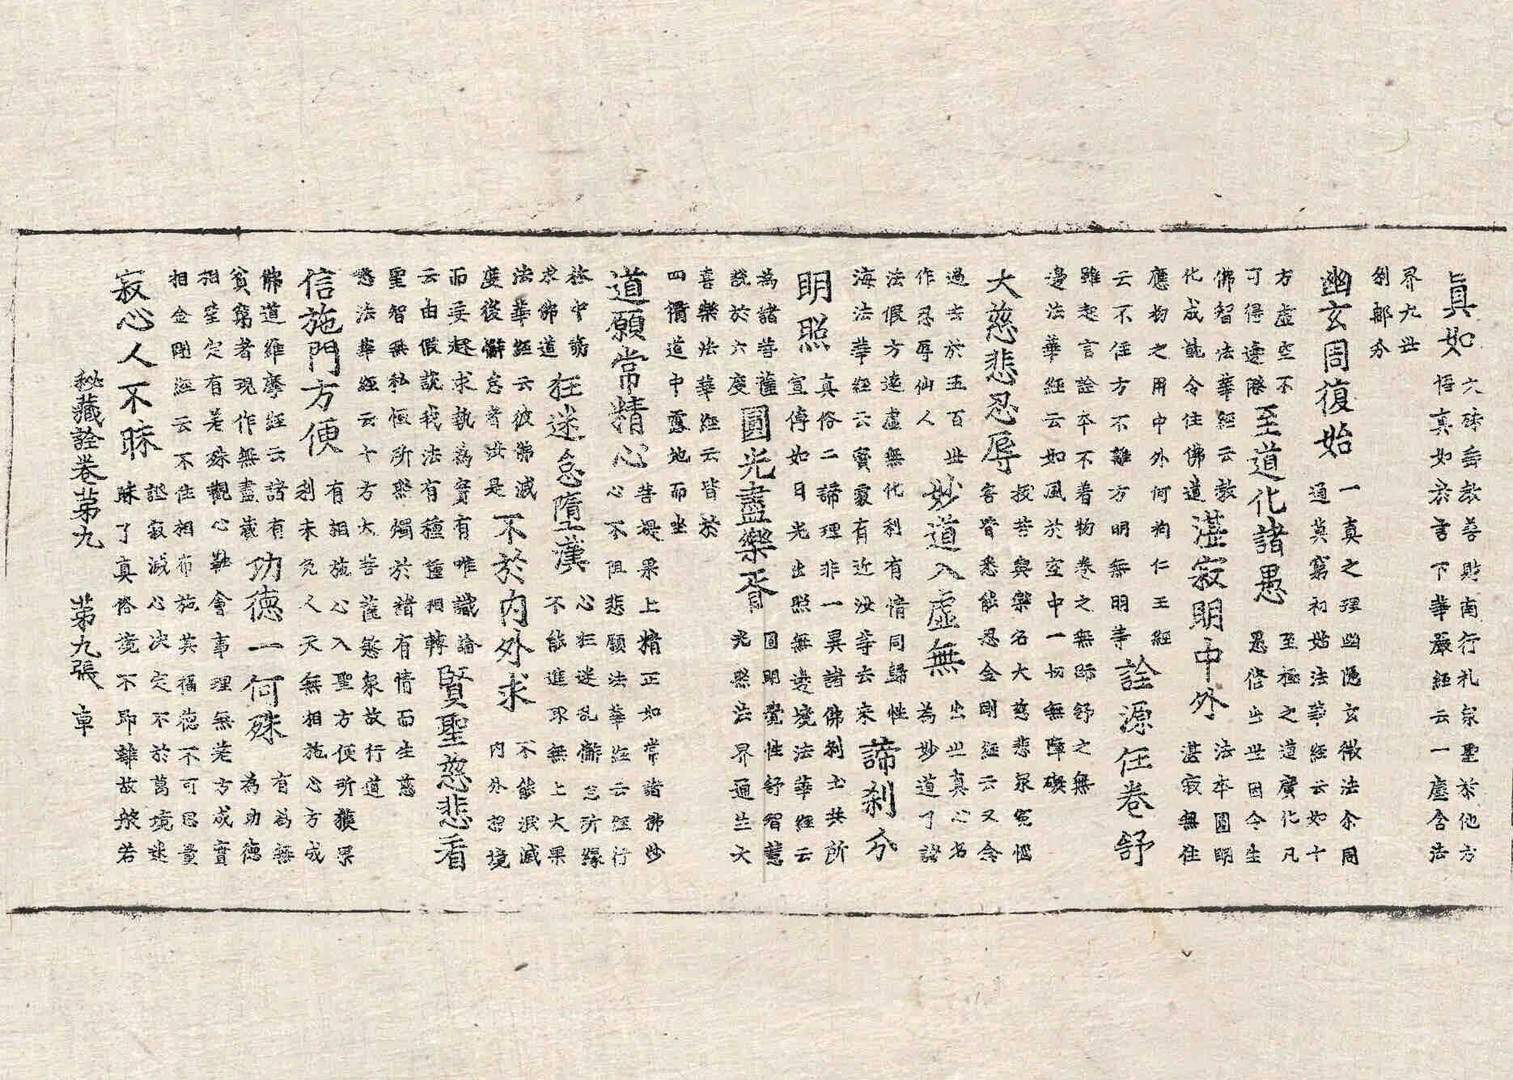 眞如
六殊垂教善財南行礼衆聖於他方
悟真如於言下華嚴經云一塵含法
界九世
刹那分
幽玄周復始
一真之理幽隱玄微法尒周
通莫窮初始法華經云如十
方虛空不
可得邊際
至道化諸愚
至極之道廣化凡
愚修出世因令生
佛智法華經云教
化成就令住佛道
湛寂明中外
法本圓明
湛寂無住
應物之用中外何拘仁王經
云不住方不離方明無明等
詮源任卷舒
雖起言詮本不着物卷之無踪舒之無
邊法華經云如風於空中一切無障礙
大慈悲忍辱
拔苦與樂名大慈悲衆寃惱
害皆悉能忍金剛經云又念
過去於五百世
作忍辱仙人
妙道入虛無
出世真心名
為妙道了諸
法假方達虛無化利有情同歸性
海法華經云寶處有近汝等去來
諦刹分
明照
真俗二諦理非一異諸佛刹土共所
宣傳如日光出照無邊境法華經云
為諸菩薩
說於六度
圓光盡樂胥
圓明覺性舒智慧
光照法界通三大
喜樂法華經云皆於
四衢道中露地而坐
道願常精心
菩提果上精正如常諸佛妙
心不阻悲願法華經云經行
林中勤
求佛道
狂迷怠墮漢
心狂迷乱懈怠所緣
不能進求無上大果
法華經云彼佛滅
度後懈怠者汝是
不於內外求
不能泯滅
內外招境
而妄起求執為實有唯識論
云由假說我法有種種相轉
賢聖慈悲看
聖智無私恒所照燭於諸有情而生慈
愍法華經云十方大菩薩愍衆故行道
信施門方便
有相施心入聖方便所獲果
利未免人天無相施心方成
佛道維摩經云諸有
貧窮者現作無盡藏
功德一何殊
有為無
為功德
相宜定有差殊觀心融會事理無差方成實
相金剛經云不住相布施其福德不可思量
寂心人不昧
證寂滅心决定不於萬境迷
昧了真俗境不即離故般若
秘藏詮卷苐九 苐九張 卓